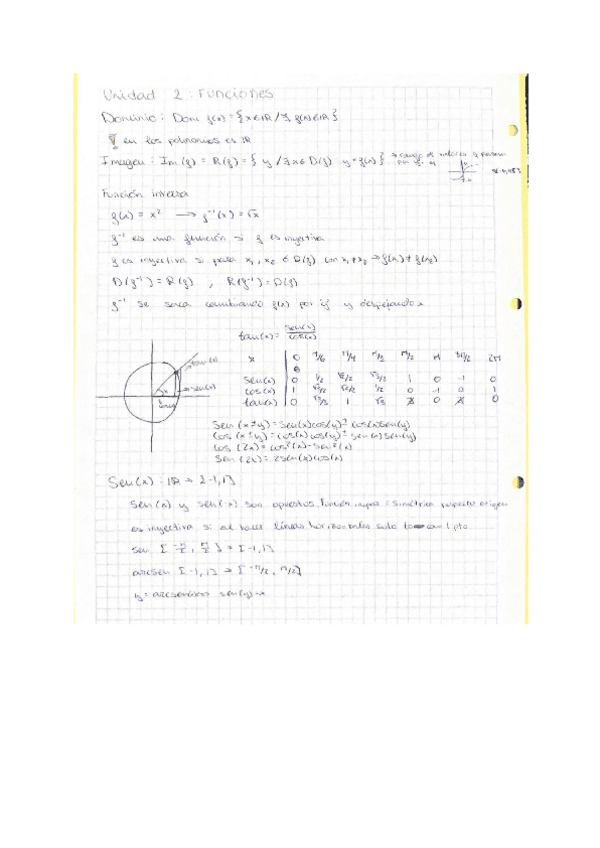 Unidad 2: Funciones
Dominio: Dom f(x) = {x∈ℝ / ∃ f(x)∈ℝ}
en los polinomios es ℝ
Imagen: Im(f) = R(f) = { y / ∃ x∈ D(f) y = f(x) } → rango de valores q
Función inversa
f(x) = x² → f⁻¹(x) = √x
f⁻¹ es una función si f es inyectiva
f es inyectiva si para x₁, x₂ ∈ D(f) con x₁ ≠ x₂ ⇒ f(x₁) ≠ f(x₂)
D(f⁻¹) = R(f) , R(f⁻¹) = D(f)
f⁻¹ se saca cambiando f(x) por y y despejando x
tan(x) = sen(x)/cos(x)
x 0 π/6 π/4 π/3 π/2 π 3π/2 2π
sen(x) 0 1/2 √2/2 √3/2 1 0 -1 0
cos(x) 1 √3/2 √2/2 1/2 0 -1 0 1
tan(x) 0 √3/3 1 √3 ∄ 0 ∄ 0
tan(x)
sen(x)
x
cos(x)
Sen (x ± y) = sen(x)cos(y) ± cos(x)sen(y)
Cos (x ± y) = cos(x)cos(y) ∓ sen(x)sen(y)
Cos (2x) = cos²(x) - sen²(x)
Sen (2x) = 2sen(x)cos(x)
Sen(x) : ℝ → [-1,1]
sen(x) y sen(x) son opuestos. Función impar = simétrica respecto origen
es inyectiva si al hacer líneas horizontales solo toca en 1 pto
sen [-π/2, π/2] → [-1,1]
arcsen [-1,1] → [-π/2, π/2]
y = arcsen(x) sen(y) = x